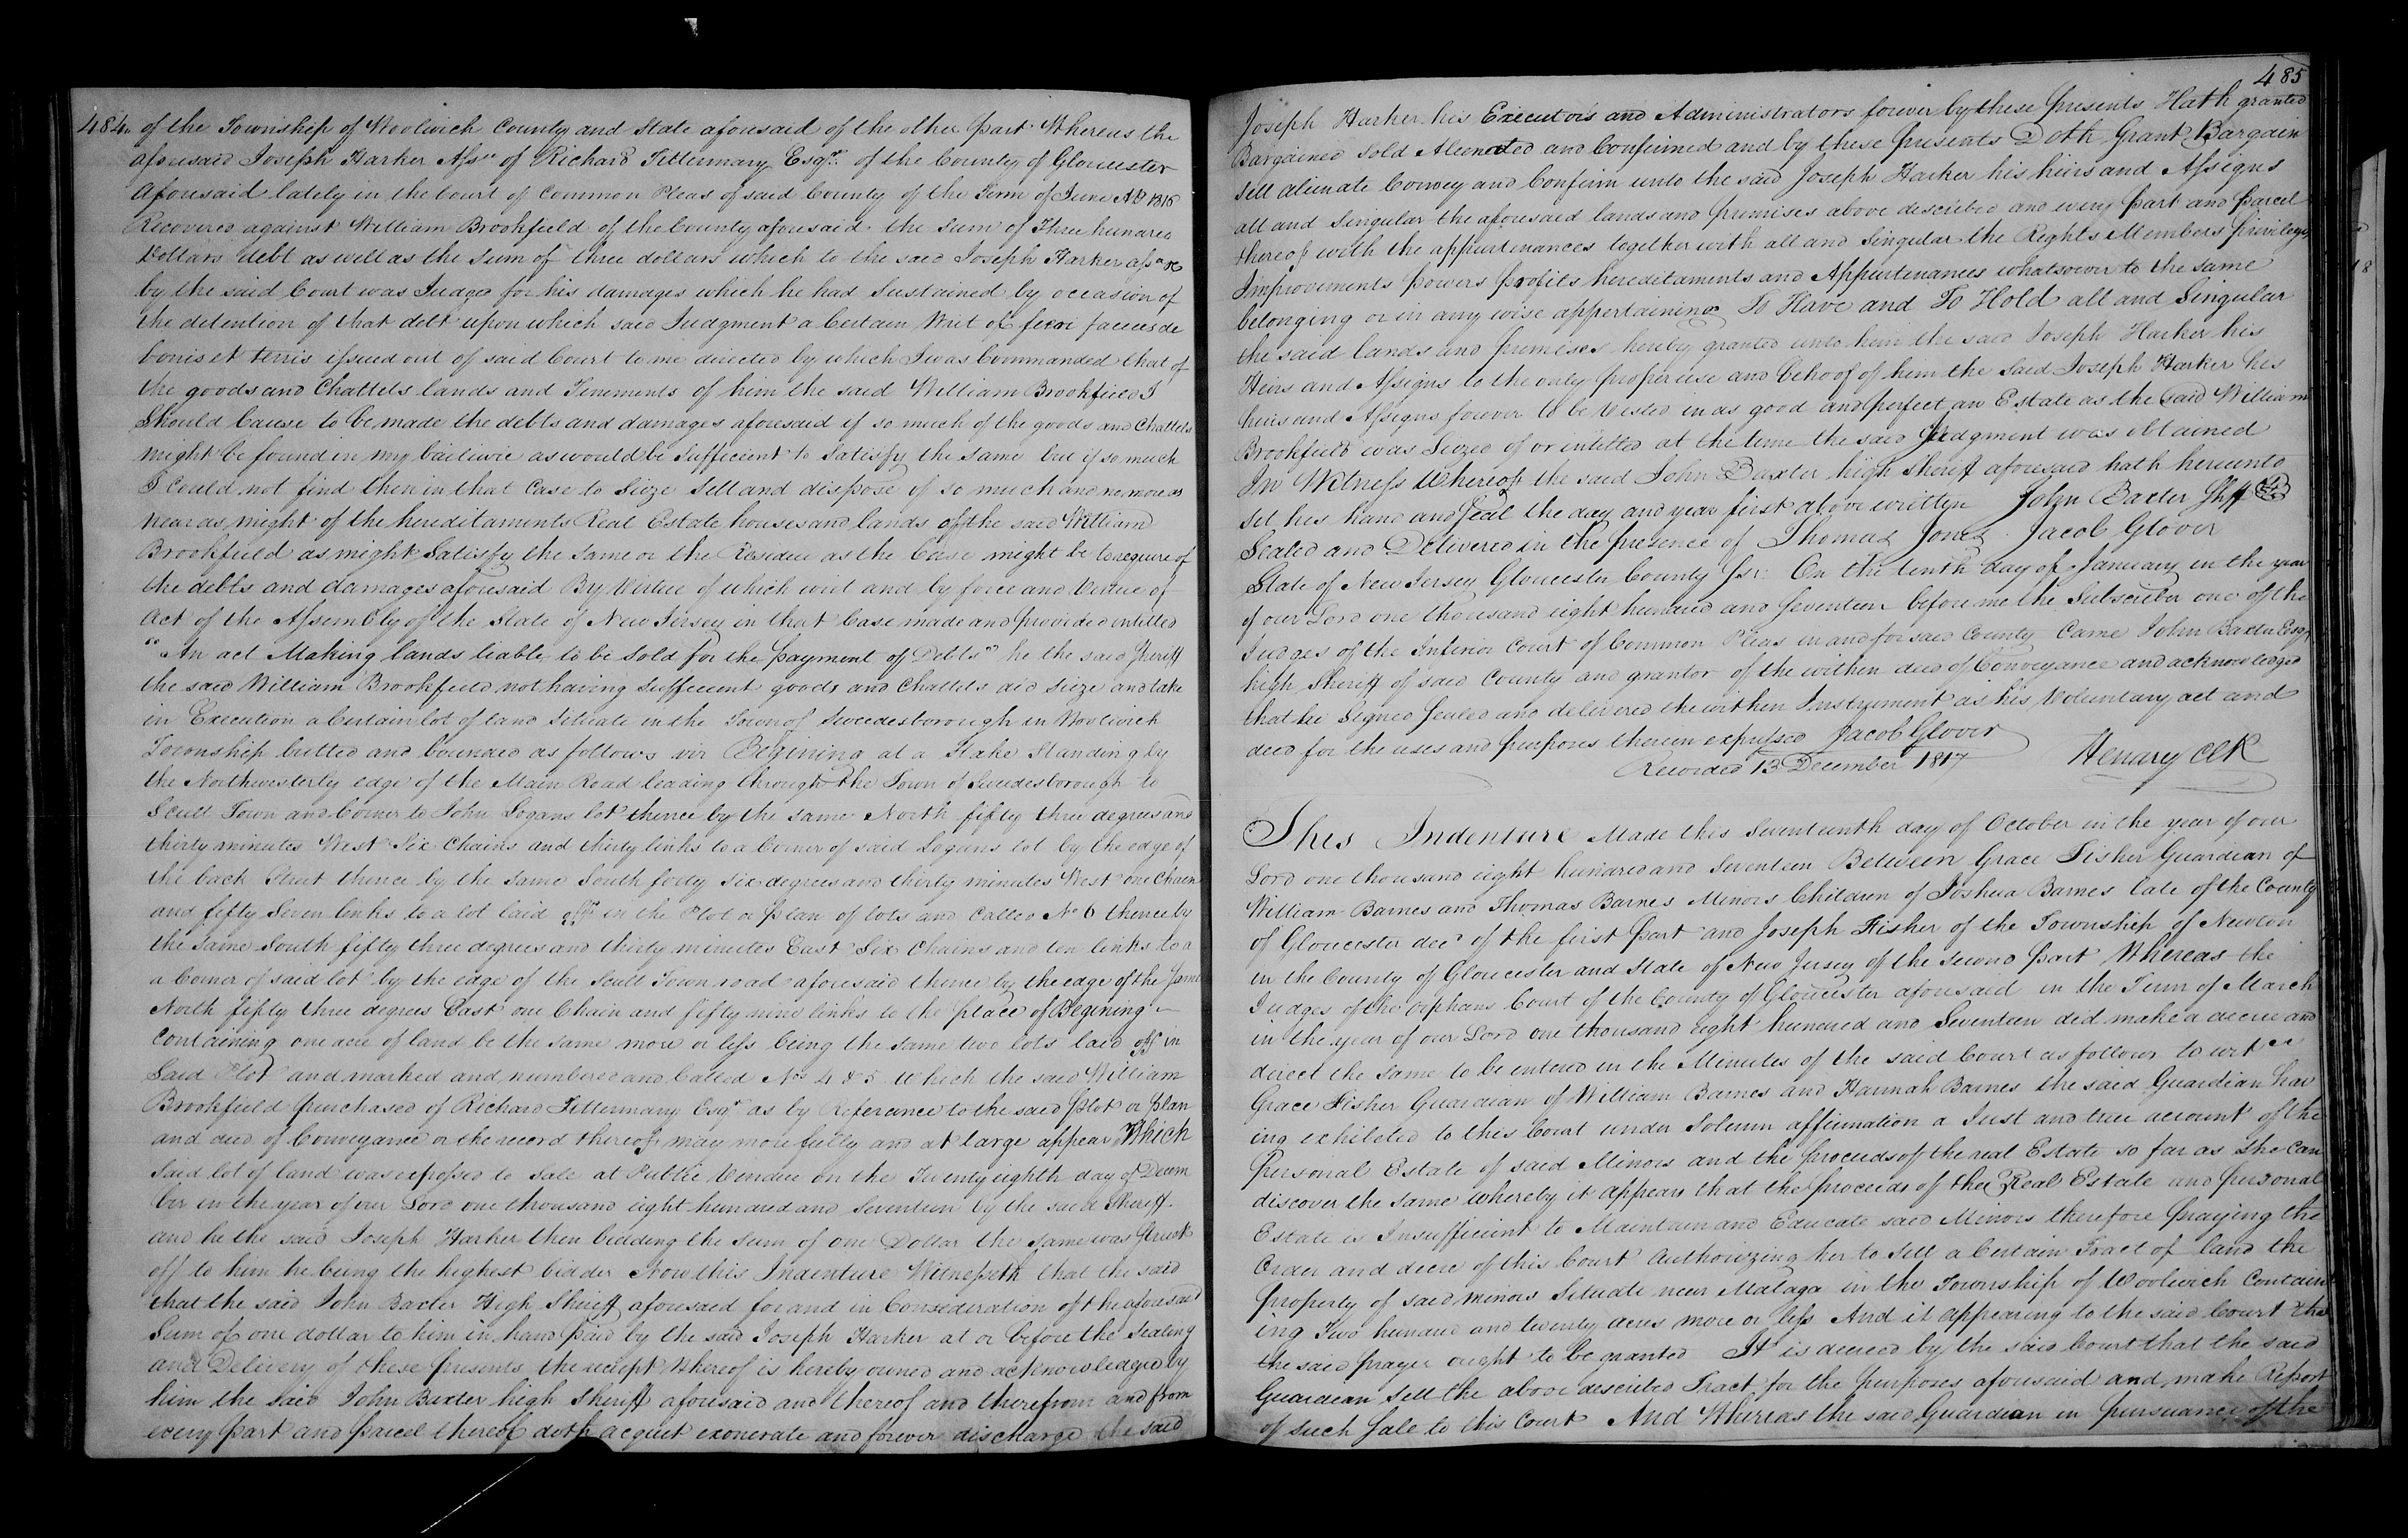 484
of the Township of Woolwich County and State aforesaid of the other part Whereas the
aforesaid Joseph Harker Assee of Richard Tittermary Esqr. of the County of Gloucester
Aforesaid lately in the Court of Common Pleas of said County of the Term of June AD 1816
Recovered against William Brookfield of the County aforesaid the sum of Three hundred
Dollars debt as well as the sum of three dollars which to the said Joseph Harker asse &c
by the said Court was Judged for his damages which he had Sustained by occasion of
the detention of that debt upon which said Judgment a Certain Writ of fieri facias de
bonis et terris issued out of said Court to me directed by which I was Commanded that of
the goods and Chattels lands and Tenements of him the said William Brookfield I
Should Cause to be made the debts and damages aforesaid if so much of the goods and Chattels
might be found in my bailiwic as would be Sufficient to satisfy the same but if so much
I could not find then in that Case to Seize Sell and dispose of so much and no more as
near as might of the hereditaments Real Estate houses and lands of the said William
Brookfield as might Satisfy the same or the Residue as the Case might be to require of
the debts and damages aforesaid By Virtue of which writ and by force and Virtue of
Act of the Assembly of the State of New Jersey in that Case made and provided intitled
"An act Making lands liable to be Sold for the payment of Debts" he the said Sheriff
the said William Brookfield not having sufficient goods and Chattels did Seize and take
in Execution a Certain lot of land Situate in the Town of Sweedesborough in Woolwich
Township butted and bounded as follows viz Begining at a Stake Standing by
the Northwesterly edge of the Main Road leading through the Town of Sweedesborough to
Scull Town and Corner to John Logans lot thence by the same North fifty three degrees and
thirty minutes West Six Chains and thirty links to a Corner of said Logans lot by the edge of
the back Street thence by the same South forty six degrees and thirty minutes West one Chain
and fifty Seven links to a lot laid off in the Plot or plan of lots and Called No 6 thence by
the same South fifty three degrees and thirty minutes East Six Chains and ten links to a
a Corner of said lot by the edge of the Scull Town road aforesaid thence by the edge of the Same
North fifty three degrees East one Chain and fifty nine links to the place of Begining
Containing one acre of land be the same more or less being the same two lots laid off in
Said Plot and marked and numbered and Called Nos 4 & 5 Which the said William
Brookfield purchased of Richard Tittermary Esqr as by Reference to the said plot or plan
and deed of Conveyance or the record thereof may more fully and at large appear Which
Said lot of land was exposed to Sale at Public Vendue on the Twenty eighth day of Decem
ber in the year of our Lord one thousand eight hundred and Seventeen by the said Sheriff
and he the said Joseph Harker then bidding the Sum of one Dollar the same was Struck
off to him he being the highest bidder Now this Indenture Witnesseth that the said
that the said John Baxter High Sheriff aforesaid for and in Consideration of the aforesaid
Sum of one dollar to him in hand paid by the said Joseph Harker at or before the Sealing
and Delivery of these presents the receipt Whereof is hereby owned and acknowledged by
him the said John Baxter high Sheriff aforesaid and thereof and therefrom and from
every part and parcel thereof doth acquit exonerate and forever discharge the said
485
Joseph Harker his Executors and Administrators forever by these presents Hath granted
Bargained Sold Alienated and Confirmed and by these presents Doth Grant Bargain
Sell alienate Convey and Confirm unto the said Joseph Harker his heirs and Assigns
all and Singular the aforesaid lands and premises above described and every part and parcel
thereof with the appurtenances together with all and Singular the Rights Members privileges
Improvements powers profits hereditaments and Appurtenances whatsoever to the same
belonging or in any wise appertaining To Have and To Hold all and Singular
the said lands and premises hereby granted unto him the said Joseph Harker his
Heirs and Assigns to the only proper use and behoof of him the Said Joseph Harker his
heirs and Assigns forever to be Vested in as good and perfect an Estate as the said William
Brookfield was Seized of or intitled at the time the said Judgment was obtained
In Witness Whereof the said John Baxter high Sheriff aforesaid hath hereunto
set his hand and Seal the day and year first above written John Baxter Shff
Sealed and Delivered in the presence of Thomas Jones Jacob Glover
State of New Jersey Gloucester County Ss: On the tenth day of January in the year
of our Lord one thousand eight hundred and Seventeen before me the Subscriber one of the
Judges of the Inferior Court of Common Pleas in and for said County Came John Baxter Esqr
high Sheriff of said County and grantor of the within deed of Conveyance and acknowledged
that he Signed Sealed and delivered the within Instrument as his Voluntary act and
deed for the uses and purposes therein expressed Jacob Glover
Recorded 13 December 1817 Henary Clk
This Indenture Made this Seventeenth day of October in the year of our
Lord one thousand eight hundred and Seventeen Between Grace Fisher Guardian of
William Barnes and Thomas Barnes Minors Children of Joshua Barnes late of the County
of Gloucester decd of the first part and Joseph Fisher of the Township of Newton
in the County of Gloucester and State of New Jersey of the Second part Whereas the
Judges of the Orphans Court of the County of Gloucester aforesaid in the Term of March
in the year of our Lord one thousand eight hundred and Seventeen did make a decree and
direct the same to be entered in the Minutes of the said Court as follows to wit "
Grace Fisher Guardian of William Barnes and Hannah Barnes the said Guardian hav
ing exhibited to this Court under Solemn affirmation a Just and true account of the
Personal Estate of said Minors and the proceeds of the real Estate so far as She can
discover the same whereby it appears that the proceeds of the Real Estate and personal
Estate is Insufficient to Maintain and Educate said Minors therefore praying the
Order and decree of this Court Authorizing her to Sell a Certain Tract of land the
property of said minors Situate near Malaga in the Township of Woolwich Contain
ing Two hundred and twenty acres more or less And it appearing to the said Court that
the said prayer ought to be granted It is decreed by the said Court that the said
Guardian Sell the above described Tract for the purposes aforesaid and make Report
of such Sale to this Court And Whereas the said Guardian in pursuance of the